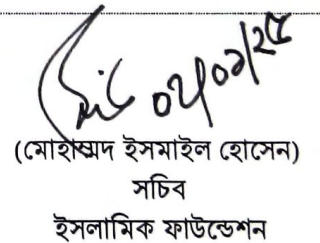 (মোহাম্মদ ইসমাইল হোসেন)
সচিব
ইসলামিক ফাউন্ডেশন